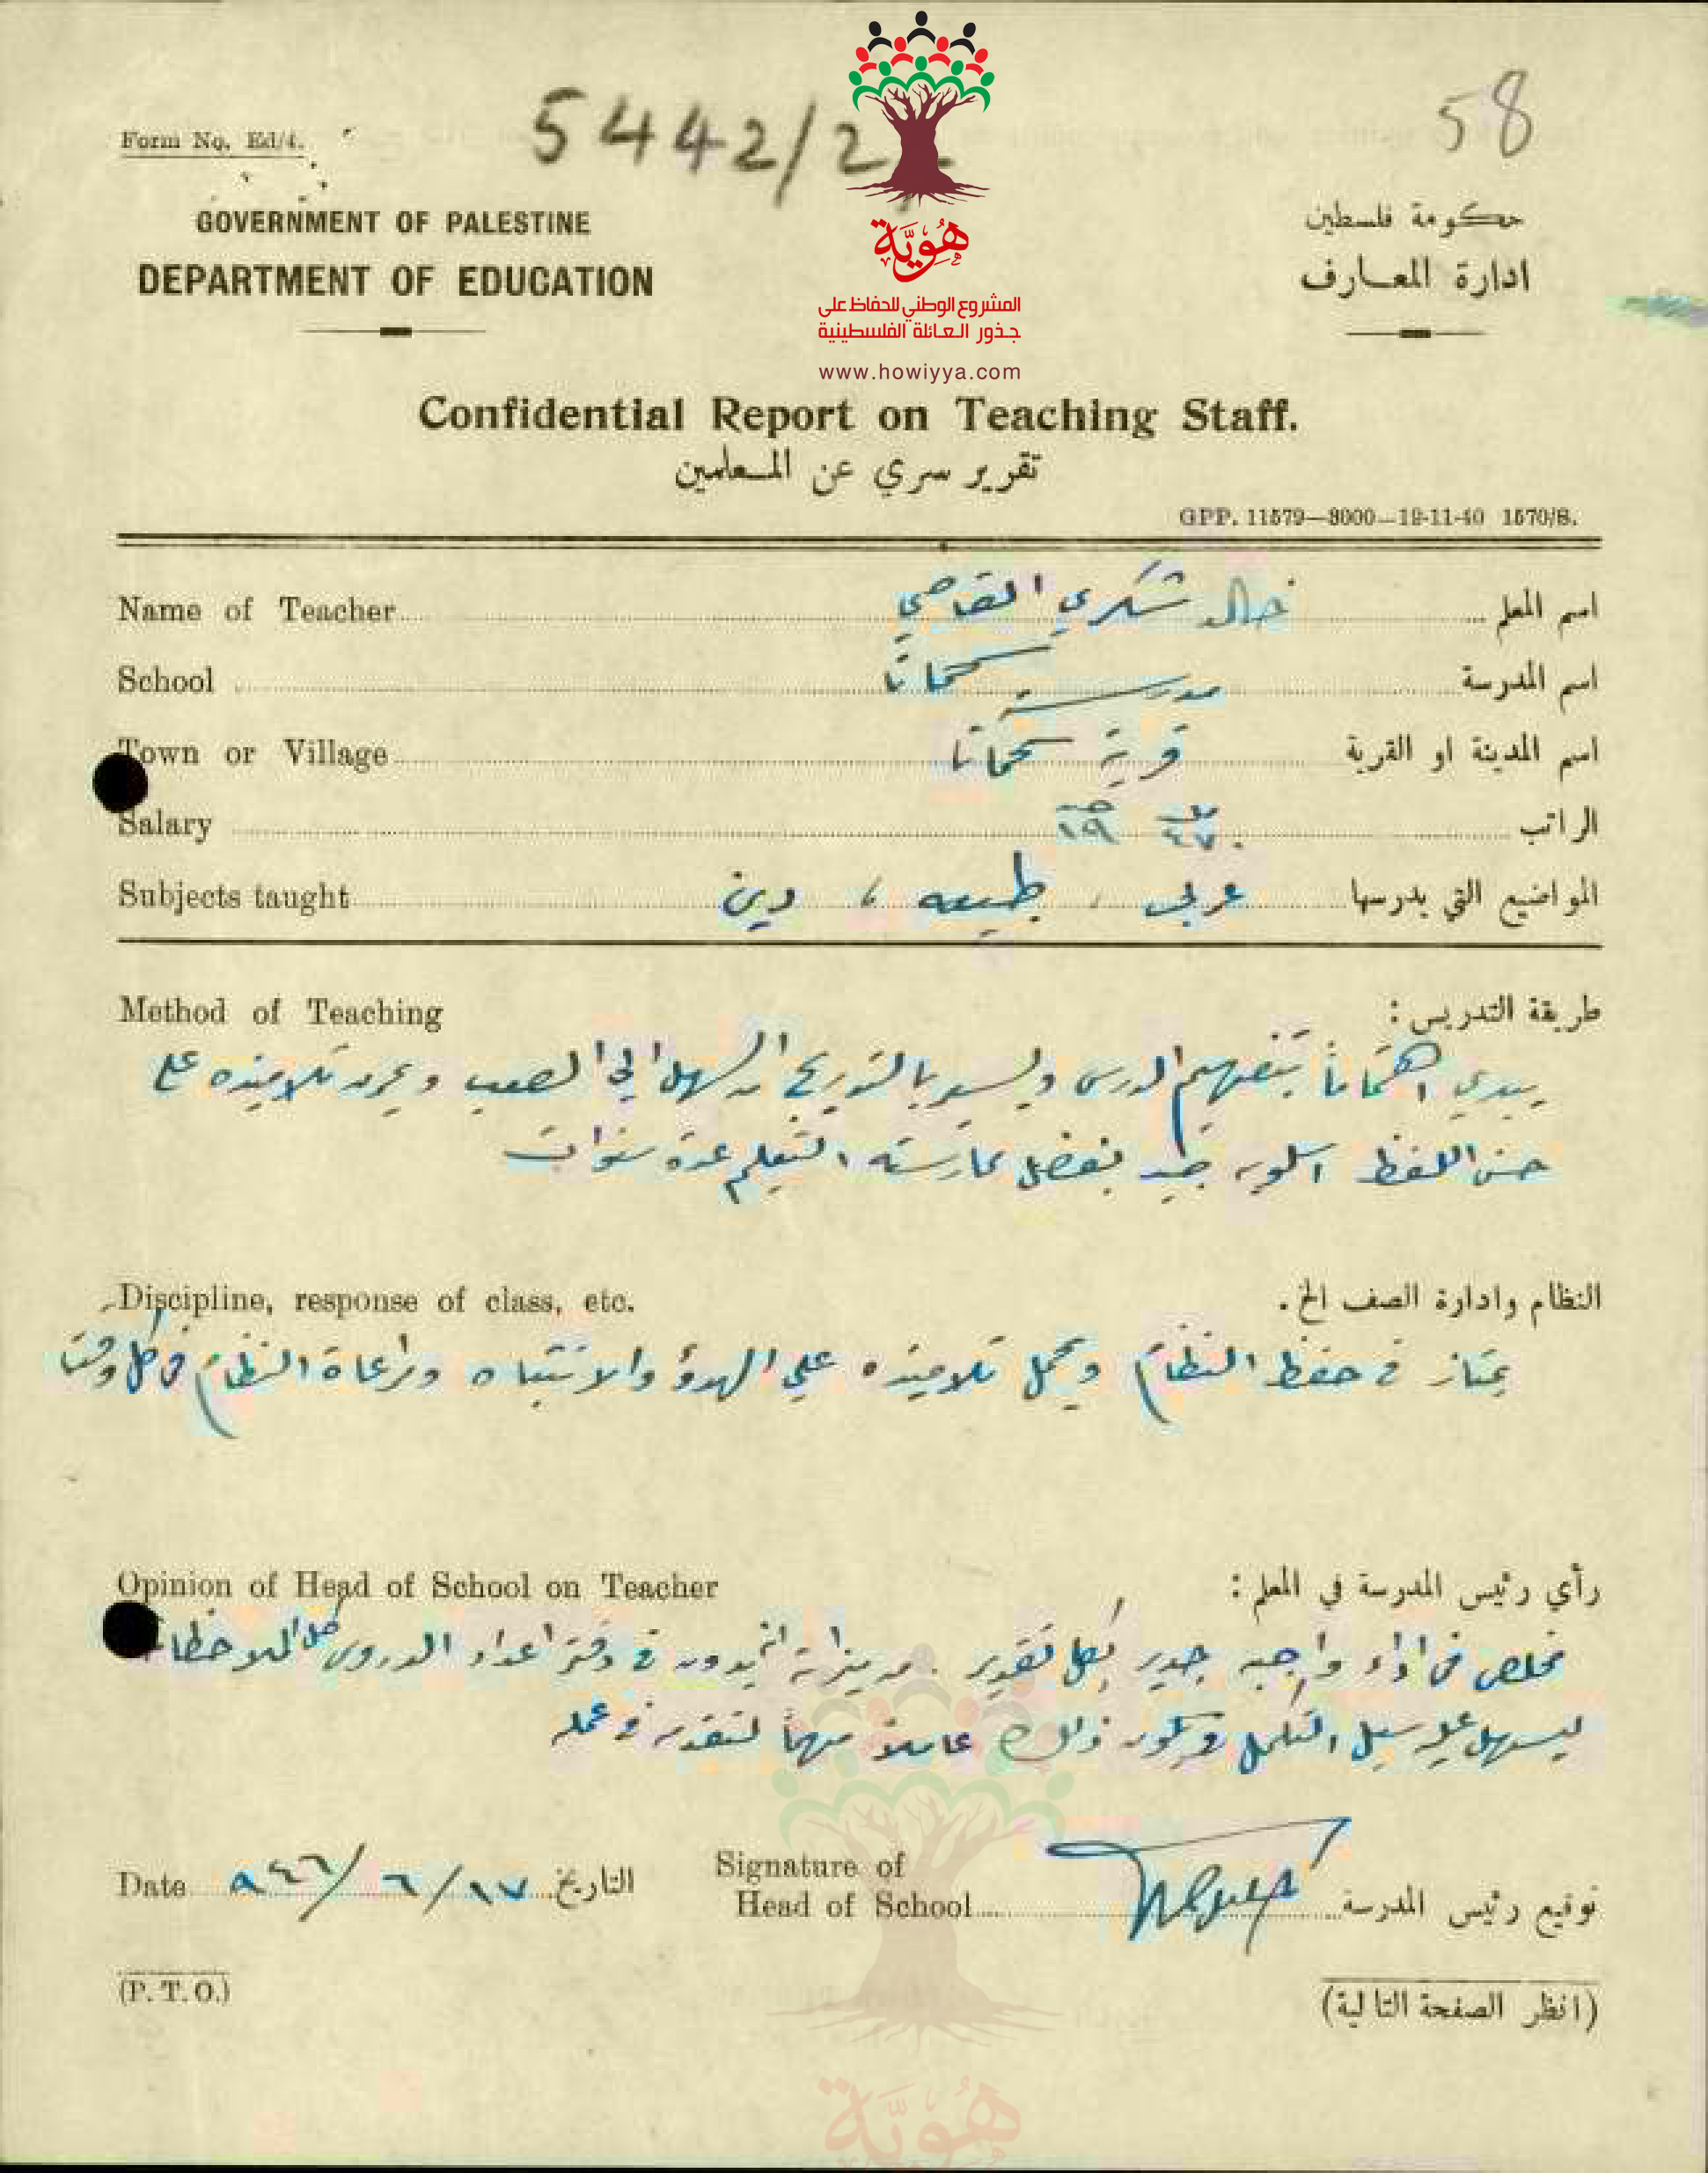 5442/2
58
Form No. Ed/4.
GOVERNMENT OF PALESTINE
حكومة فلسطين
DEPARTMENT OF EDUCATION
ادارة المعارف
هُويَّة
المشروع الوطني للحفاظ على
جذور العائلة الفلسطينية
www.howiyya.com
Confidential Report on Teaching Staff.
تقرير سري عن المعلمين
GPP. 11579—3000—19-11-40 1570/S.
Name of Teacher خالد شكري القاضي اسم المعلم
School مدرسة سحماتا اسم المدرسة
Town or Village قرية سحماتا اسم المدينة او القرية
Salary الراتب
Subjects taught عربي ، طبيعه ، دين المواضيع التي يدرسها
Method of Teaching طريقة التدريس :
يبدي اهتماماً بتفهيم الدرس ويسير بالتدريج من السهل الى الصعب ويمرن تلاميذه على
حسن اللفظ اسلوبه جيد بفضل ممارسته التعليم عدة سنوات
Discipline, response of class, etc. النظام وادارة الصف الخ .
يمتاز في حفظ النظام ويحمل تلاميذه على الهدؤ والانتباه ومراعاة النظام في كل وقت
Opinion of Head of School on Teacher رأي رئيس المدرسة في المعلم :
مخلص في اداء واجبه جدير بكل تقدير . من ميزاته انه يدون في دفتر اعداد الدروس كل الملاحظات
ليسهل عليه سبيل التكمل ويكون ذلك عاملاً مهماً لتقدمه في عمله
Date ١٧/٦/٩٤٦ التاريخ
Signature of
Head of School توقيع رئيس المدرسة
(P. T. O.)
(انظر الصفحة التالية)
هُويَّة